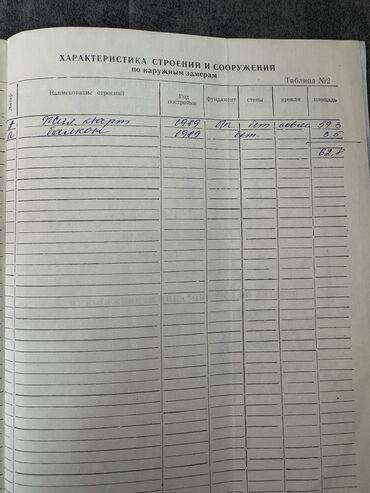 ХАРАКТЕРИСТИКА СТРОЕНИЙ И СООРУЖЕНИЙ
по наружным замерам
Таблица №2
Литер Наименование строений Год постройки фундамент стены кровля площадь
А Жил. кварт 1989 бет совме 59.3
а балкон 1989 бет. 3.5
62,8